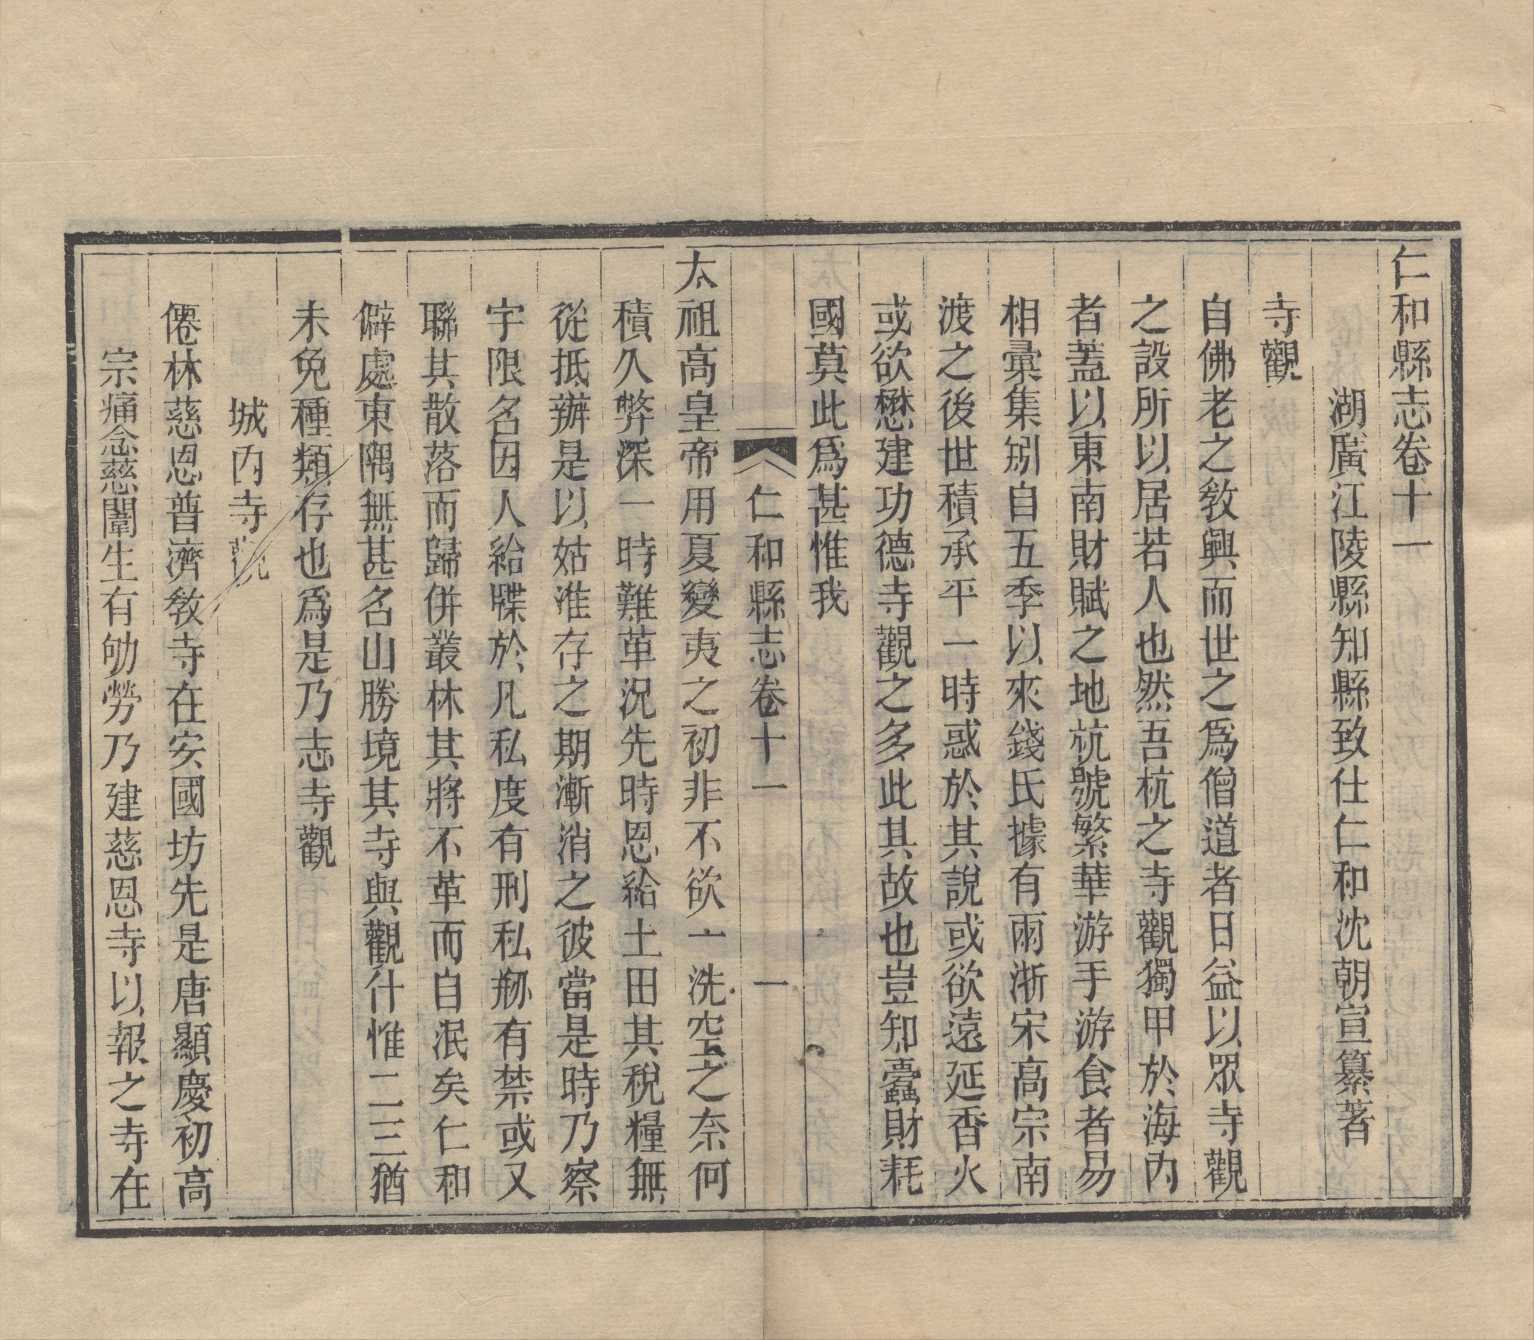 仁和縣志卷十一
湖廣江陵縣知縣致仕仁和沈朝宣纂著
寺觀
自佛老之敎興而世之爲僧道者日益以眾寺觀
之設所以居若人也然吾杭之寺觀獨甲於海內
者蓋以東南財賦之地杭號繁華游手游食者易
相彙集矧自五季以來錢氏據有兩浙宋高宗南
渡之後世積承平一時惑於其說或欲遠延香火
或欲懋建功德寺觀之多此其故也豈知蠹財耗
國莫此爲甚惟我
仁和縣志卷十一　一
太祖高皇帝用夏變夷之初非不欲一洗空之奈何
積久弊深一時難革況先時恩給土田其稅糧無
從抵辦是以姑准存之期漸消之彼當是時乃察
宇限名因人給牒於凡私度有刑私剏有禁或又
聯其散落而歸併叢林其將不革而自泯矣仁和
僻處東隅無甚名山勝境其寺與觀什惟二三猶
未免種類存也爲是乃志寺觀
城內寺觀
僊林慈恩普濟敎寺在安國坊先是唐顯慶初高
宗痛念慈闈生有劬勞乃建慈恩寺以報之寺在